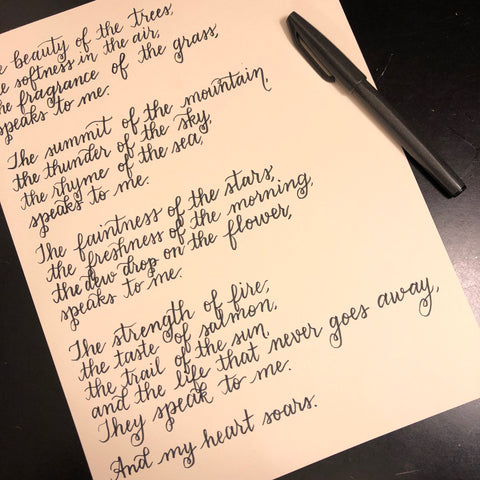 beauty of the trees,
softness in the air,
the fragrance of the grass,
speaks to me.
The summit of the mountain,
the thunder of the sky,
the rhyme of the sea,
speaks to me.
The faintness of the stars,
the freshness of the morning,
the dew drop on the flower,
speaks to me.
The strength of fire,
the taste of salmon,
the trail of the sun,
and the life that never goes away,
They speak to me.
And my heart soars.